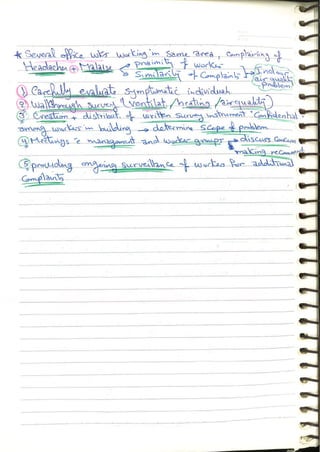 * Several office wks working in same area, complaining of
Headache + Malaise < Proximity of worker
Similarity of Complaints } Indoor air quality problem
① Carefully evaluate symptomatic individual
② Walkthrough survey (ventilat / heating / air quality)
③ Creation + distribut. of written survey instrument confidential
among worker in building → determine scope of problem
④ Meetings c management and worker groups → discuss concern
making recommend
⑤ providing ongoing surveillance of worker for additional
complaints